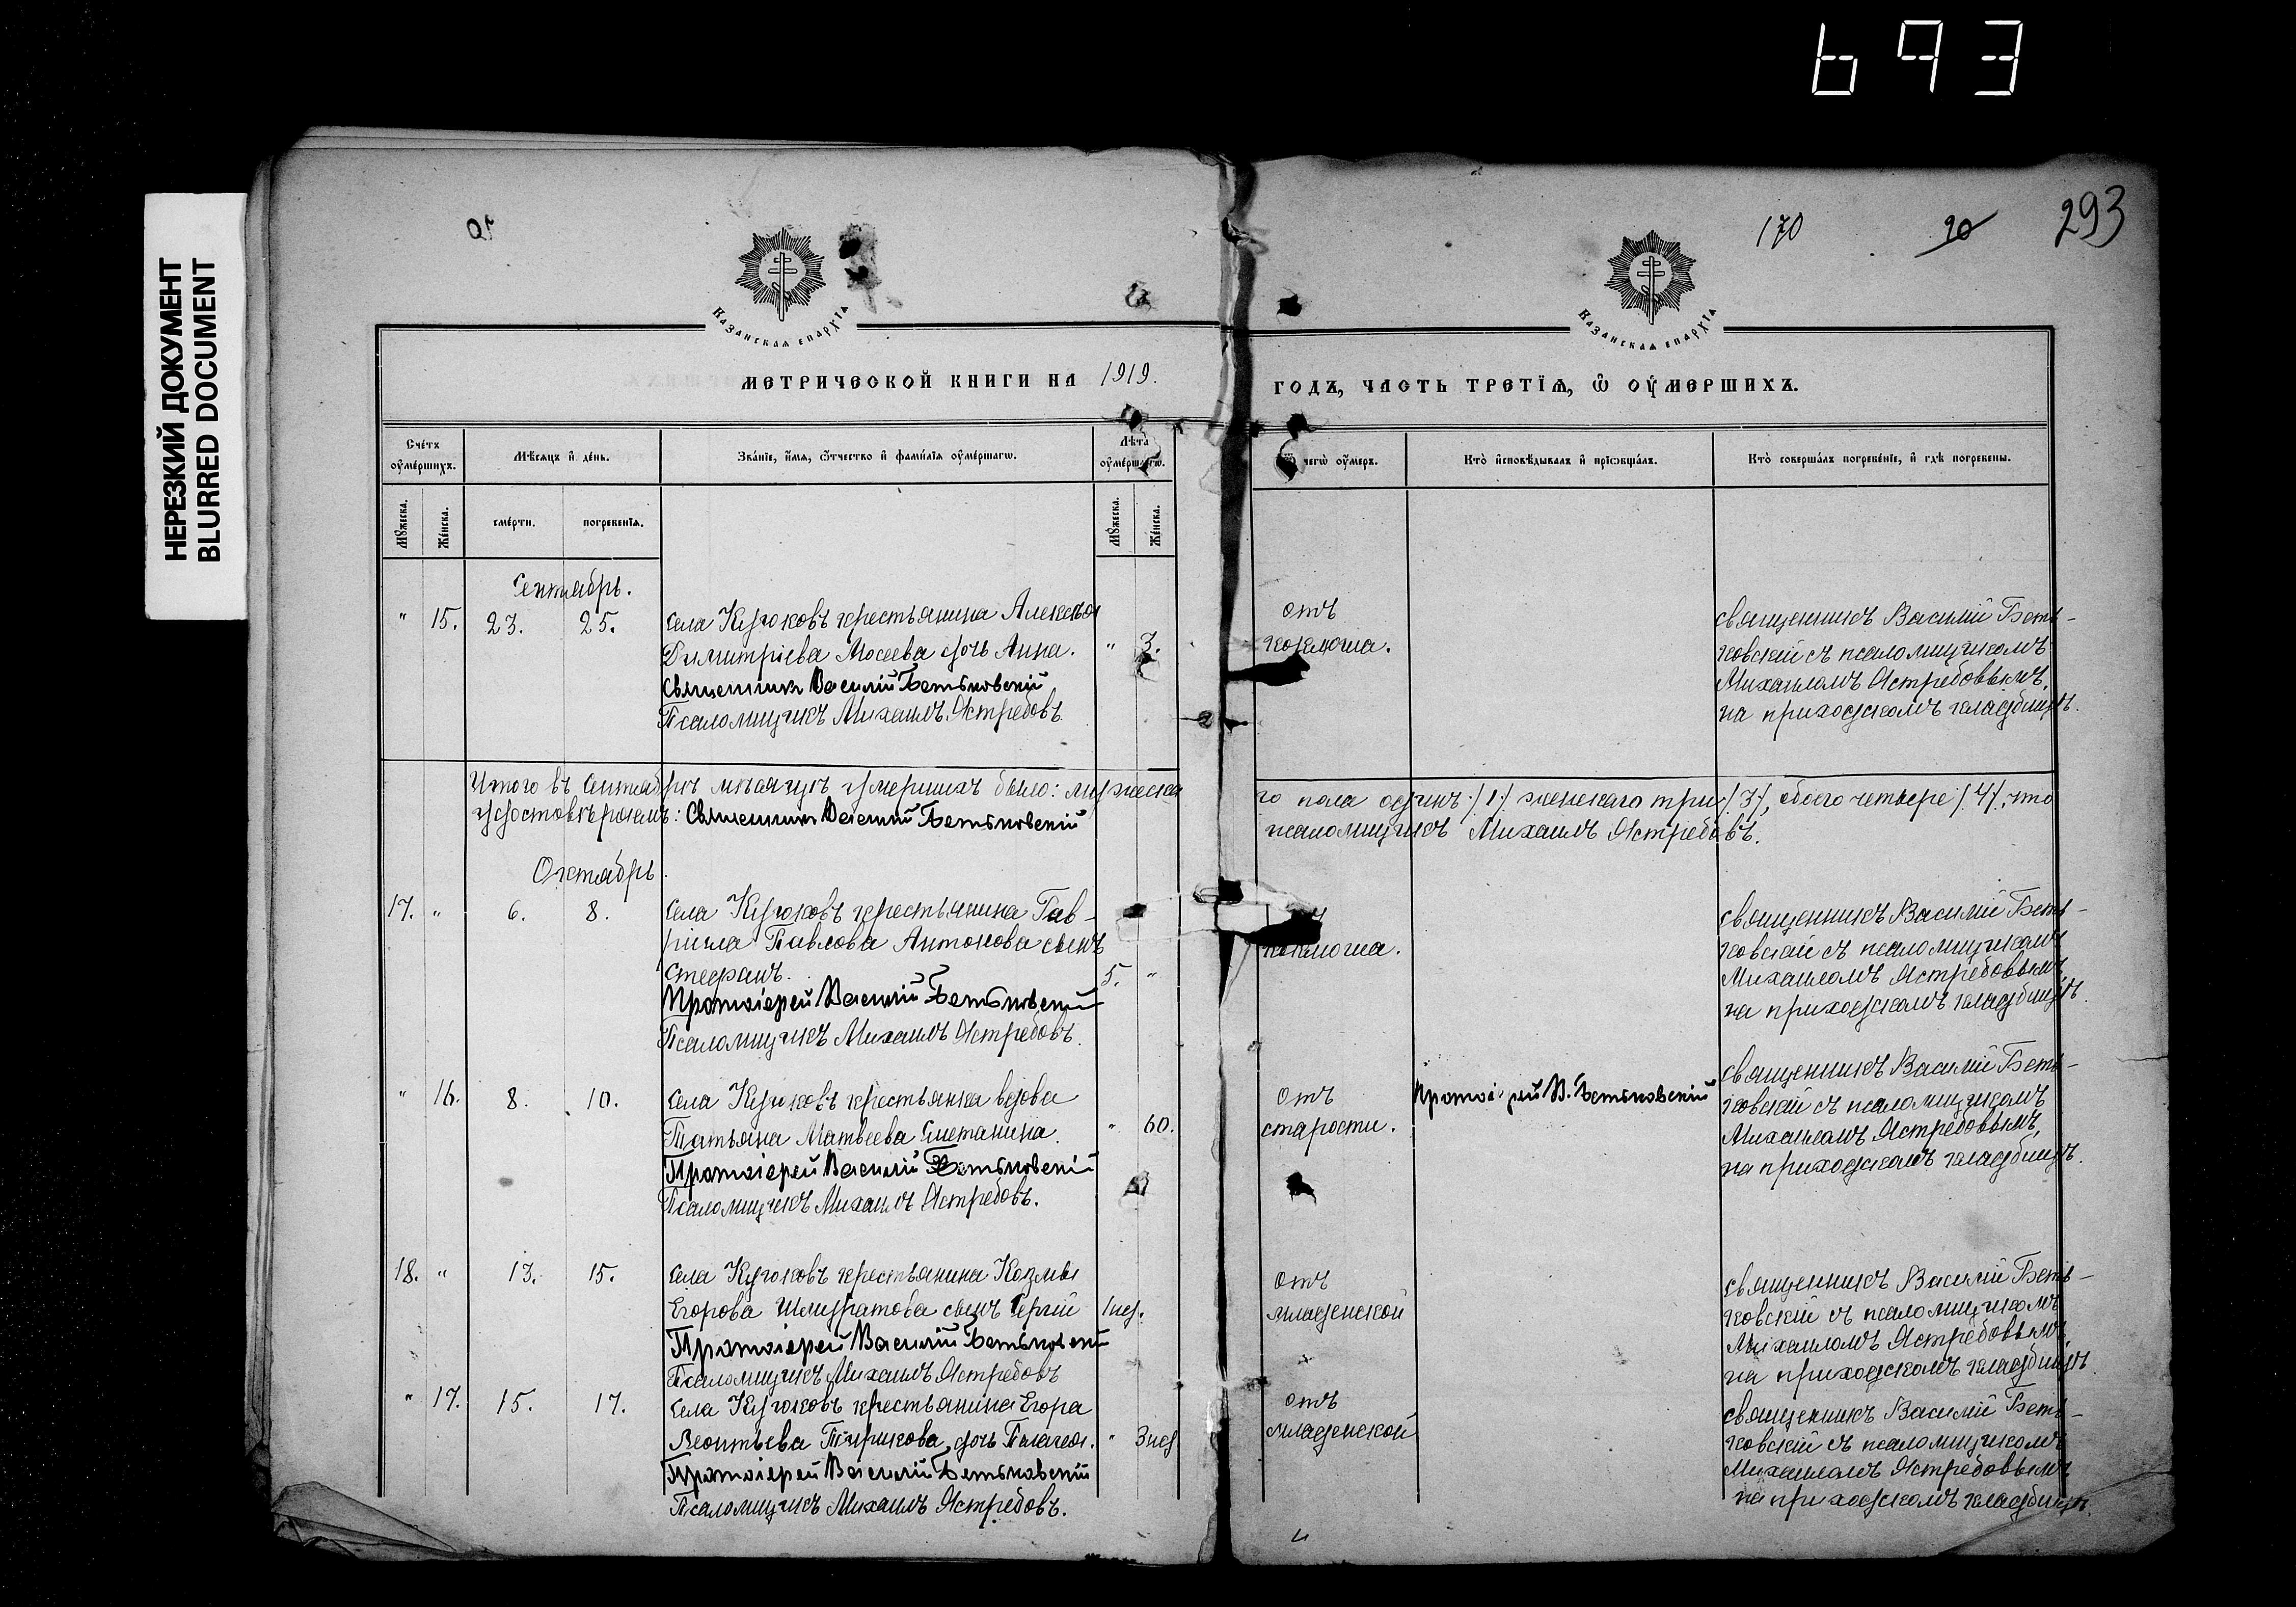 693
НЕРЕЗКИЙ ДОКУМЕНТ
BLURRED DOCUMENT
170 20 293
Казанская епархїа
Казанская епархїа
МЕТРИЧЕСКОЙ КНИГИ НА 1919.
ГОДЪ, ЧАСТЬ ТРЕТЇѦ, Ѡ ОУМЕРШИХЪ.
Счетъ оумершихъ.
Мѣсяцъ и день.
Званїе, имя, отчество и фамилїя оумершагѡ.
Лѣта оумершагѡ.
чегѡ оумеръ.
Кто исповѣдывалъ и прїѡбщалъ.
Кто совершалъ погребенїе, и гдѣ погребены.
Мужеска.
Женска.
смерти.
погребенїя.
Мужеска.
Женска.
Сентябрь.
" 15. 23. 25.
Села Кугюковъ крестьянина Алексѣя
Димитріева Мосеева дочь Анна. " 3.
Священникъ Василій Бетьковскій
Псаломщикъ Михаилъ Ястребовъ
отъ
коклюша.
священникъ Василій Беть-
ковскій съ псаломщикомъ
Михаиломъ Ястребовымъ,
на приходскомъ кладбищѣ.
Итого въ Сентябрѣ мѣсяцѣ умершихъ было: мужеска
го пола одинъ /1/ женскаго три /3/, обоего четверо /4/, что
удостовѣряемъ: Священникъ Василій Бетьковскій
псаломщикъ Михаилъ Ястребовъ.
Октябрь
17. " 6. 8.
Села Кугюковъ крестьянина Гав-
ріила Павлова Антонова сынъ
Стефанъ. 5. "
Протоіерей Василій Бетьковскій
Псаломщикъ Михаилъ Ястребовъ.
коклюша.
священникъ Василій Беть-
ковскій съ псаломщикомъ
Михаиломъ Ястребовымъ,
на приходскомъ кладбищѣ.
" 16. 8. 10.
Села Кугюковъ крестьянка вдова
Татьяна Матвеева Сметанина. " 60.
Протоіерей Василій Бетьковскій
Псаломщикъ Михаилъ Ястребовъ.
Отъ
старости.
Протоіерей В. Бетьковскій
священникъ Василій Беть-
ковскій съ псаломщикомъ
Михаиломъ Ястребовымъ,
на приходскомъ кладбищѣ.
18. " 13. 15.
Села Кугюковъ крестьянина Козмы
Егорова Шмуратова сынъ Сергій 1 нед.
Протоіерей Василій Бетьковскій
Псаломщикъ Михаилъ Ястребовъ
Отъ
младенской
священникъ Василій Беть-
ковскій съ псаломщикомъ
Михаиломъ Ястребовымъ,
на приходскомъ кладбищѣ
" 17. 15. 17.
Села Кугюковъ крестьянина Егора
Леонтьева дочь Пелагея. " 3 нед
Протоіерей Василій Бетьковскій
Псаломщикъ Михаилъ Ястребовъ.
отъ
младенской
священникъ Василій Беть-
ковскій съ псаломщикомъ
Михаиломъ Ястребовымъ
на приходскомъ кладбищѣ.